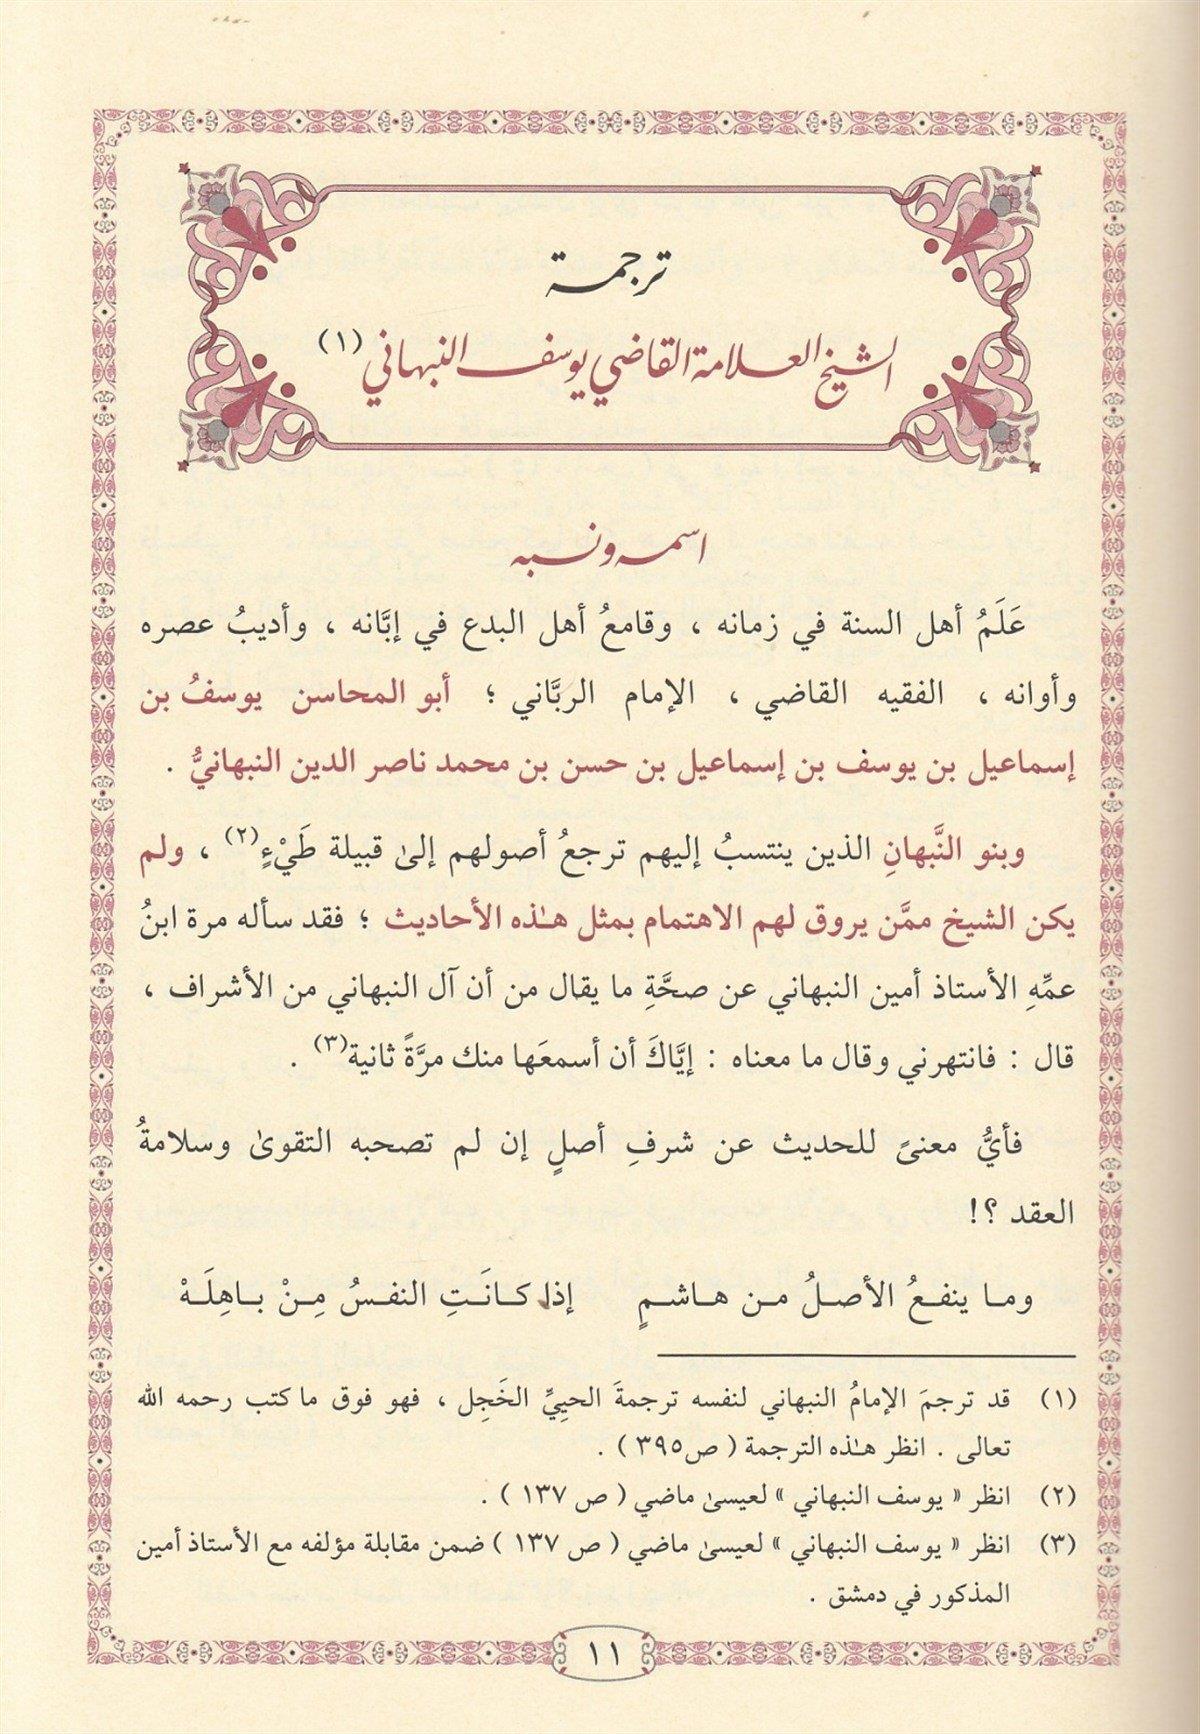 ترجمة
الشيخ العلامة القاضي يوسف النبهاني (١)
اسمه ونسبه
عَلَمُ أهل السنة في زمانه ، وقامعُ أهل البدع في إبَّانه ، وأديبُ عصره
وأوانه ، الفقيه القاضي ، الإمام الربَّاني ؛ أبو المحاسن يوسفُ بن
إسماعيل بن يوسف بن إسماعيل بن حسن بن محمد ناصر الدين النبهانيُّ .
وبنو النَّبهانِ الذين ينتسبُ إليهم ترجعُ أصولهم إلىٰ قبيلة طَيْءٍ(٢) ، ولم
يكن الشيخ ممَّن يروق لهم الاهتمام بمثل هـٰذه الأحاديث ؛ فقد سأله مرة ابنُ
عمِّهِ الأستاذ أمين النبهاني عن صحَّةِ ما يقال من أن آل النبهاني من الأشراف ،
قال : فانتهرني وقال ما معناه : إيَّاكَ أن أسمعَها منك مرَّةً ثانية(٣) .
فأيُّ معنىً للحديث عن شرفِ أصلٍ إن لم تصحبه التقوىٰ وسلامةُ
العقد ؟!
وما ينفعُ الأصلُ من هاشمٍ إذا كانَتِ النفسُ مِنْ باهِلَهْ
(١) قد ترجمَ الإمامُ النبهاني لنفسه ترجمةَ الحيِيِّ الخَجِل ، فهو فوق ما كتب رحمه الله
تعالى . انظر هـٰذه الترجمة ( ص٣٩٥ ) .
(٢) انظر « يوسف النبهاني » لعيسىٰ ماضي ( ص ١٣٧ ) .
(٣) انظر « يوسف النبهاني » لعيسىٰ ماضي ( ص ١٣٧ ) ضمن مقابلة مؤلفه مع الأستاذ أمين
المذكور في دمشق .
١١